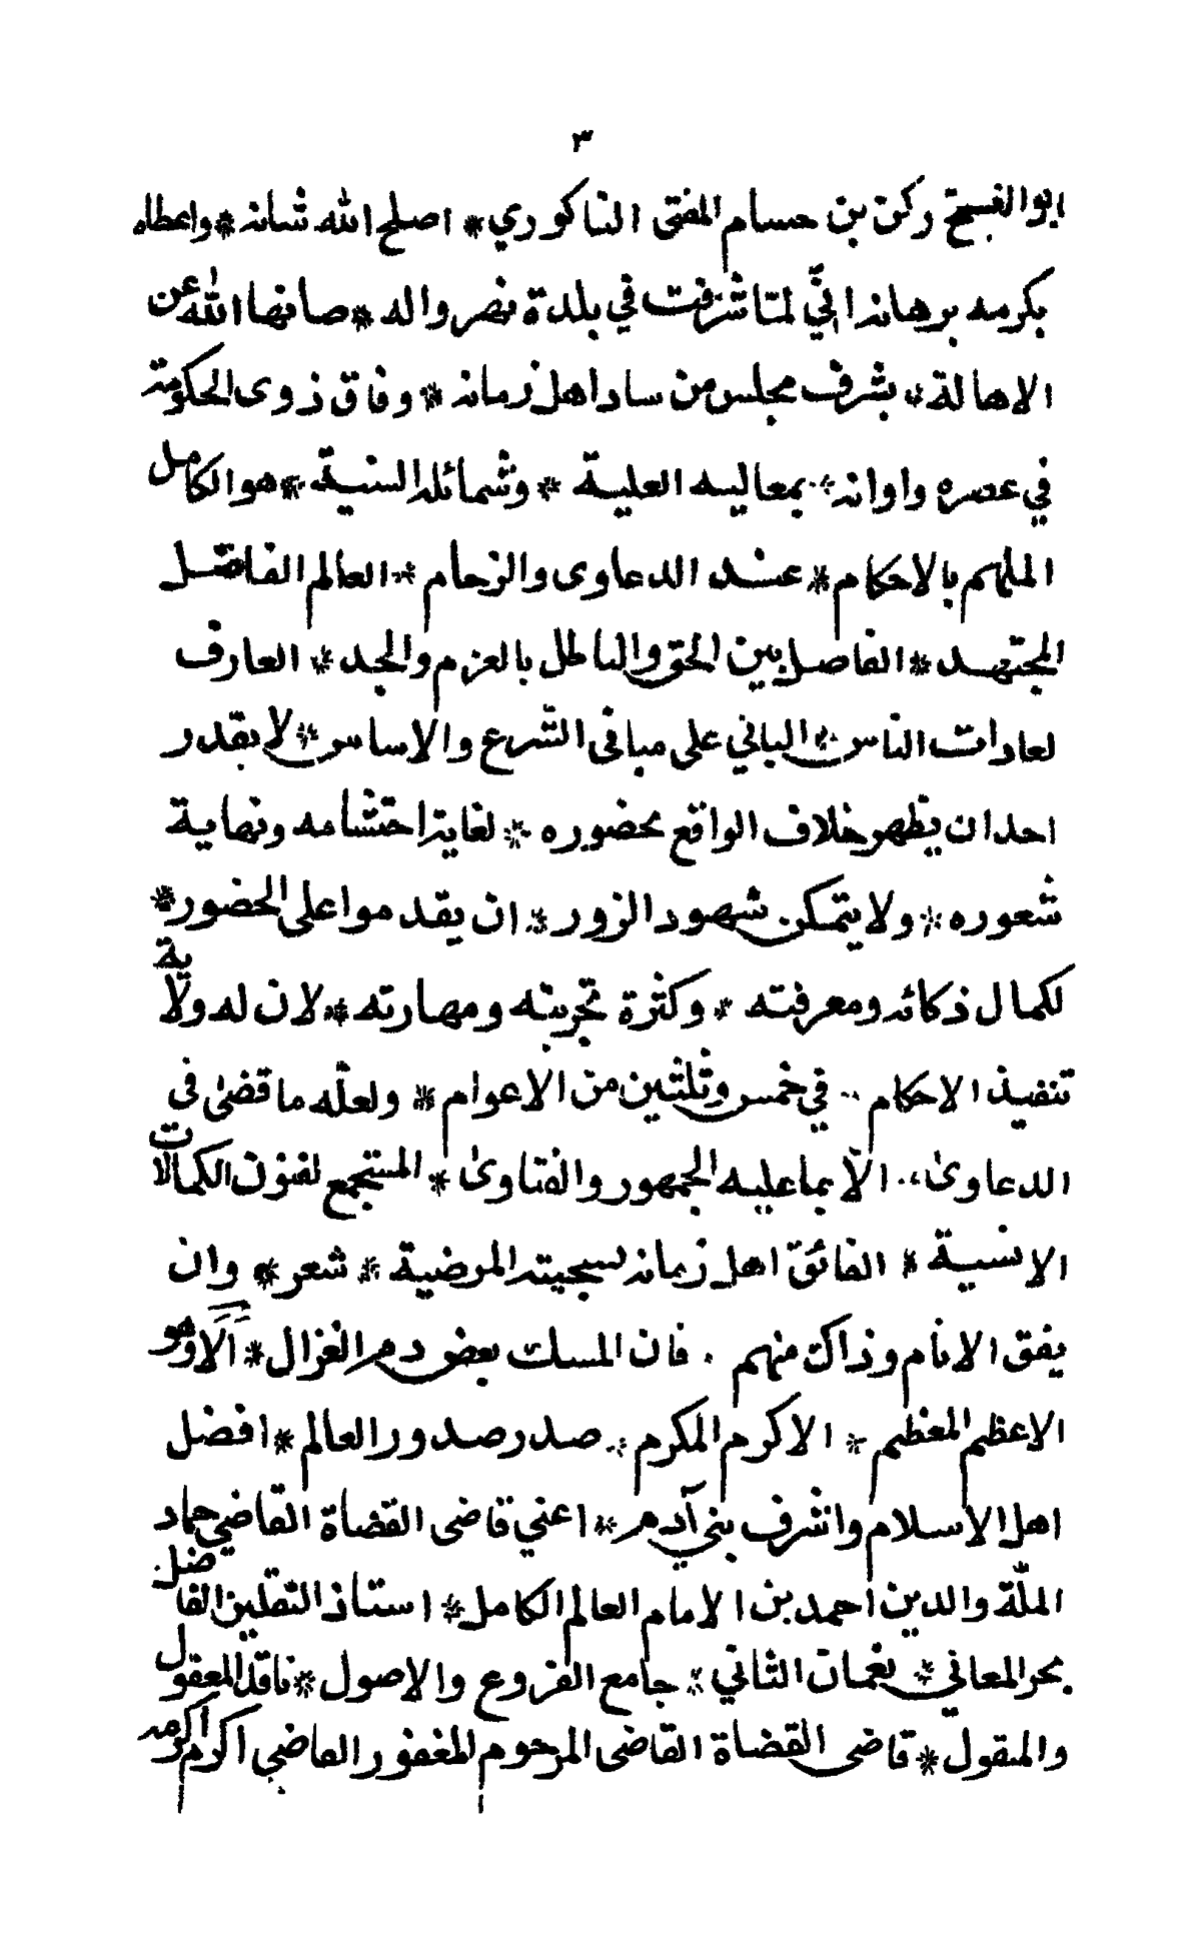 ٣
ابو الفتح ركن بن حسام المفتى الناكوري * اصلح الله شانه * واعطاه
بكرمه برهانه انّي لمّا شرفت في بلدة نهرواله * صانها الله عن
الاهالة * بشرف مجلس من ساد اهل زمانه * وفاق ذوى الحكومة
في عصره واوانه * بمعاليه العلية * وشمائله السنية * هو الكامل
الملهم بالاحكام * عند الدعاوى والزحام * العالم الفاضل
المجتهد * الفاصل بين الحق والباطل بالعزم والجد * العارف
لعادات الناس * الباني على مبانى الشرع والاساس * لا يقدر
احد ان يظهر خلاف الواقع بحضوره * لغاية احتشامه ونهاية
شعوره * ولا يتمكن شهود الزور * ان يقدموا على الحضور *
لكمال ذكائه ومعرفته * وكثرة تجربته ومهارته * لان له ولاية
تنفيذ الاحكام * في خمس وثلثين من الاعوام * ولعلّه ما قضىٰ فى
الدعاوىٰ * الّا بما عليه الجمهور والفتاوىٰ * المستجمع لفنون الكمالات
الانسية * الفائق اهل زمانه لسجيته المرضية * شعر * وان
يفق الانام وذاك منهم * فان المسك بعض دم الغزال * الا وهو
الاعظم المعظم * الاكرم المكرم * صدر صدور العالم * افضل
اهل الاسلام واشرف بني آدم * اعني قاضى القضاة القاضي حماد
الملّة والدين احمد بن الامام العالم الكامل * استاذ الثقلين الفاضل
بحر المعاني * نعمان الثاني * جامع الفروع والاصول * ناقد المعقول
والمنقول * قاضى القضاة القاضى المرحوم المغفور القاضي اكرم اكرمه